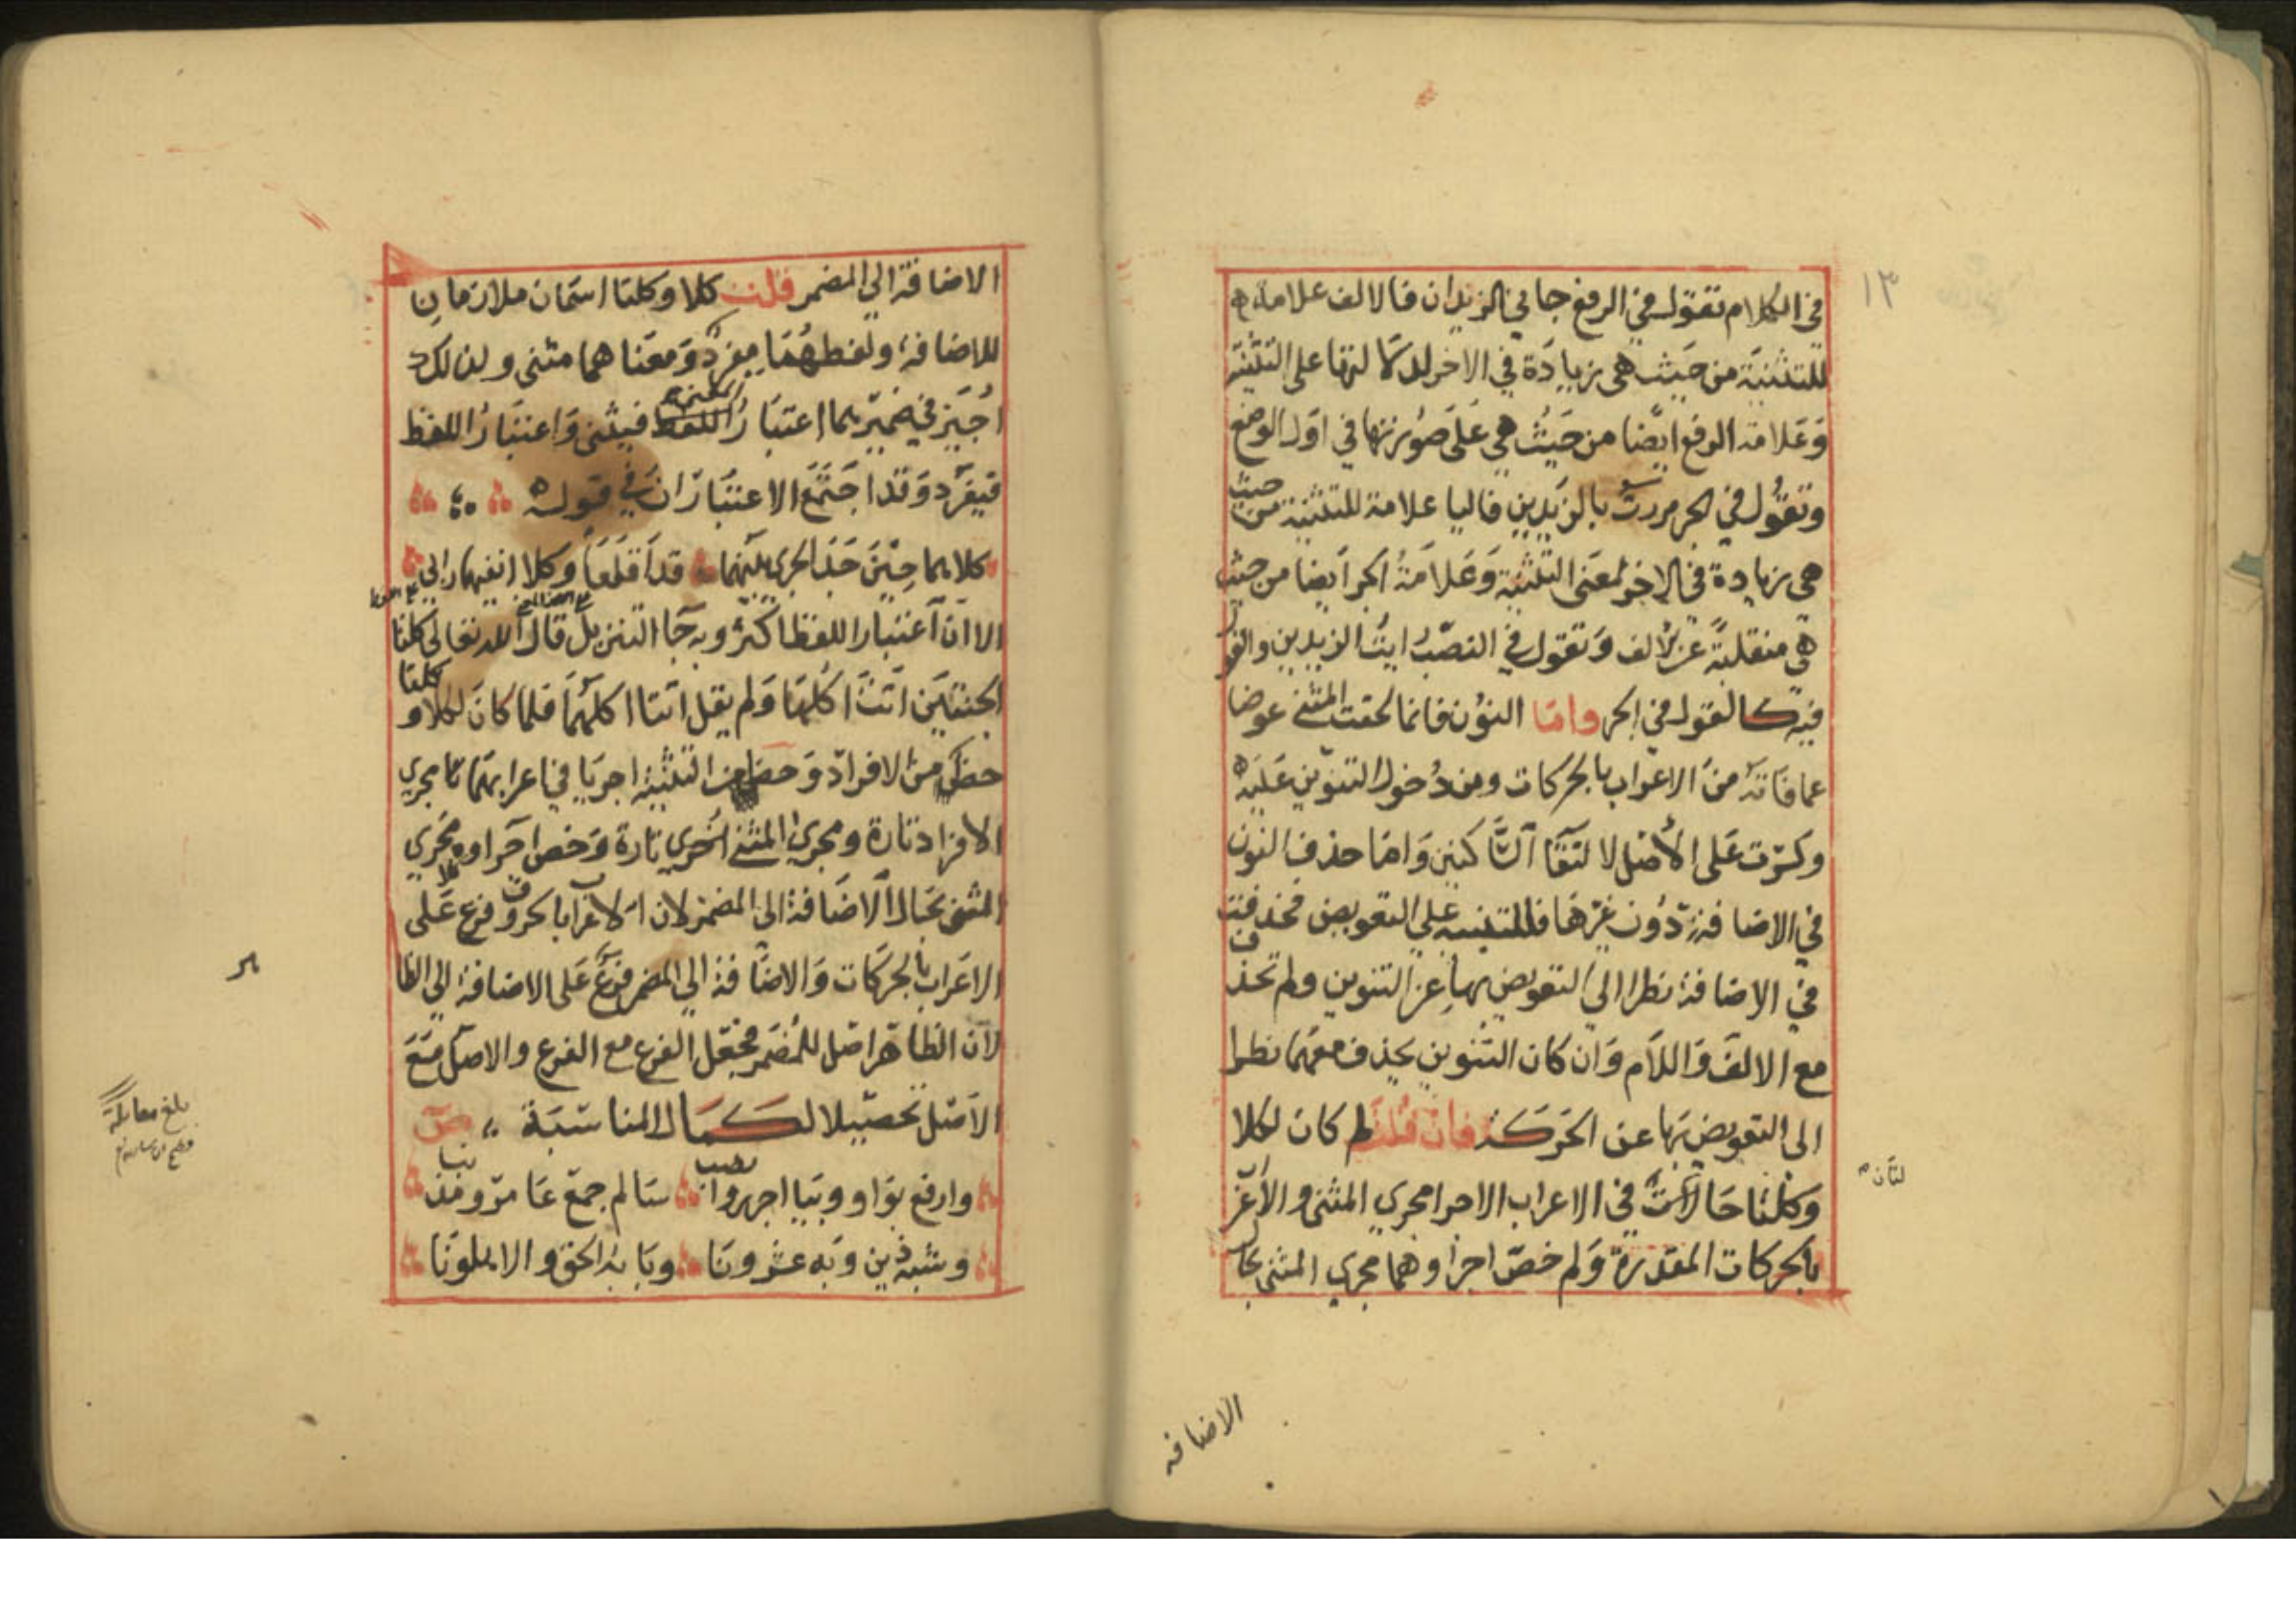 ١٣
في الكلام تقول في الرفع جاني الزيدان فالالف علامة
للتثنية من حيث هي زيادة في الاخر لدلالتها على التثنية
وعلامة الرفع ايضا من حيث هي على صورتها في اول الوضع
وتقول في الجر مررت بالزيدين فاليا علامة للتثنية من حيث
هي زيادة في الاخر لمعنى التثنية وعلامة الجر ايضا من حيث
هي منقلبة عن الف وتقول في النصب رايت الزيدين والقول
فيه كالقول في الجر واما النون فانما لحقت المثنى عوضا
عما فاته من الاعراب بالحركات ومن دخول التنوين عليه
وكسرت على الاصل لالتقا الساكنين واما حذف النون
في الاضافة دون غيرها فللتنبيه على التعويض فحذفت
في الاضافة نظرا الى التعويض بها عن التنوين ولم تحذف
مع الالف واللام وان كان التنوين يحذف معهما نظرا
الى التعويض بها عن الحركة فان قلت لم كان لكلا
وكلتا حالتان في الاعراب الاجرا مجرى المثنى والاعراب
بالحركات المقدرة ولم خص اجراوهما مجرى المثنى بحال
الاضافه
الاضافة الى المضمر قلت كلا وكلتا اسمان ملازمان
للاضافة ولفظهما مفرد ومعناهما مثنى ولذلك
اجيز في ضميرهما اعتبار المعنى فيثنى واعتبار اللفظ
فيفرد وقد اجتمع الاعتباران في قوله
كلاهما حين جد الجري بينهما قد اقلعا وكلا انفيهما رابي
الا ان اعتبار اللفظ اكثر وبه جا التنزيل قال الله تعالى كلتا
الجنتين اتت اكلها ولم يقل اتتا اكلهما فلما كان لكلا وكلتا
حظ من الافراد وحظ من التثنية اجريا في اعرابهما مجرى
الافراد تارة ومجرى المثنى اخرى تارة وخص اجراوهما مجرى
المثنى بحال الاضافة الى المضمر لان الاعراب بالحروف فرع على
الاعراب بالحركات والاضافة الى المضمر فرع على الاضافة الى الظا
لان الظاهر اصل للمضمر فجعل الفرع مع الفرع والاصل مع
الاصل تحصيلا لكمال المناسبة ص
وارفع بواو وبيا اجرر وانصب سالم جمع عامر ومذنب
وشبه ذين وبه عشرونا وبابه الحق والاهلونا
بلغ مقابلة